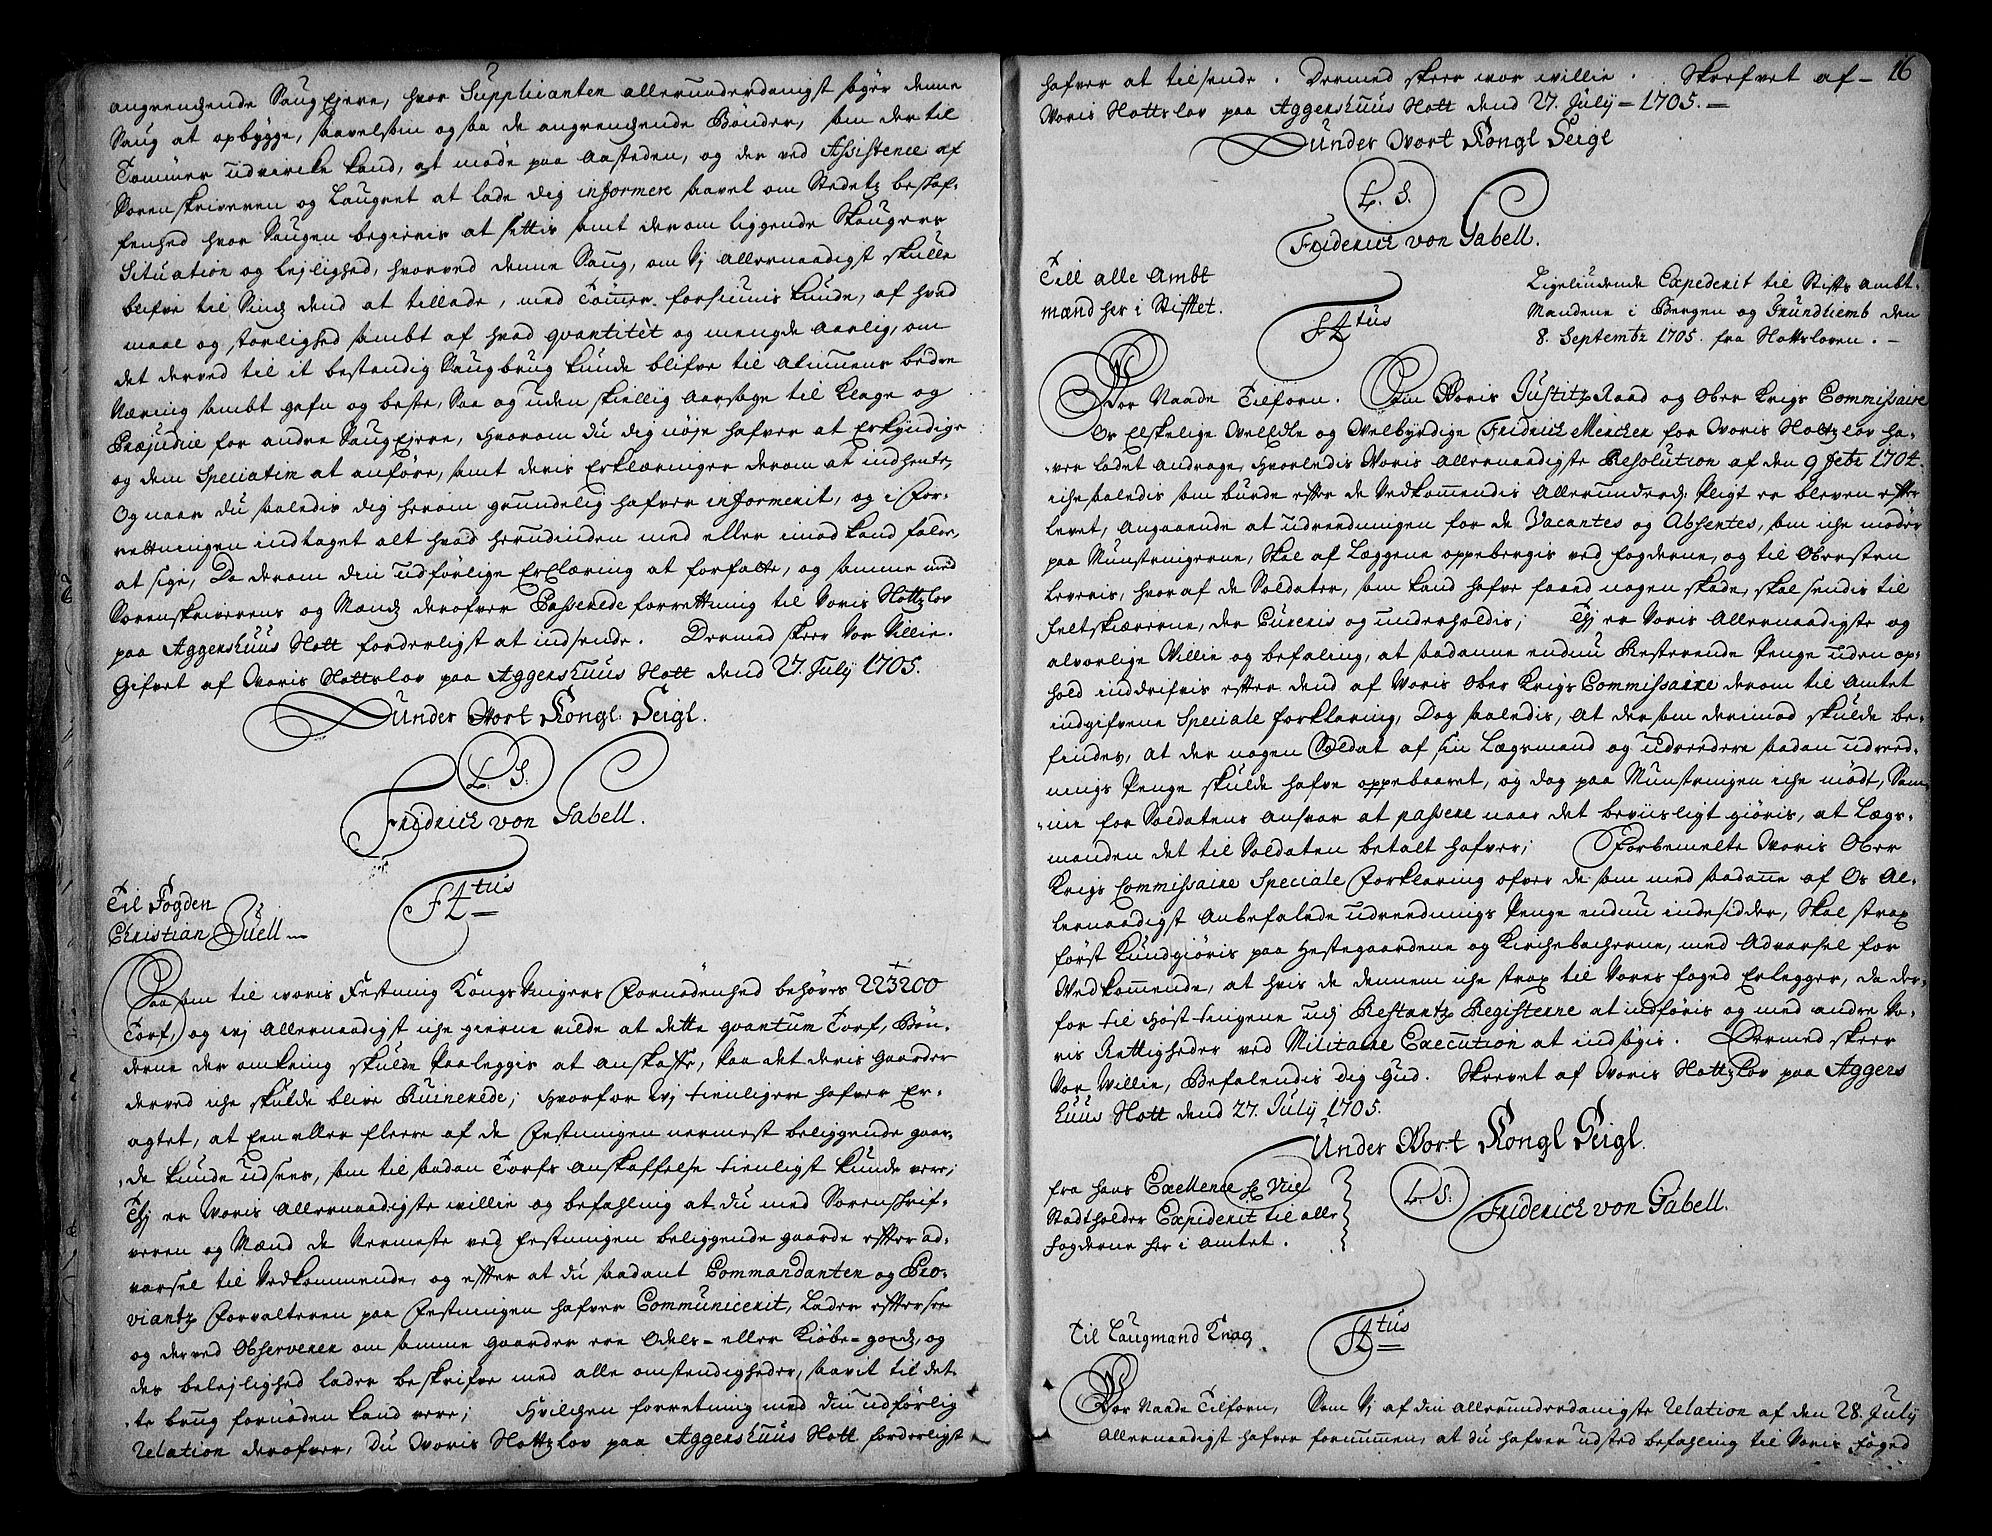 angrendsende Saug Ejere, hvor Supplicanten allerunderdanigst søger denne
Saug at opbygge, saavelsom og saa de angrendsende Bønder, som der til
Tømmer udvircke kand, at møde paa Aasteden, og der ved Assistence af
Sorenskriveren og Laugret at lade dig informere saavel om Stedetz beskaf-
fenhed hvor Saugen begieris at settis samt der om liggende Skaugers
Situation og Lejlighed, hvorved denne Saug, om Vj Allernaadigst skulle
blifve til Sindz dend at tillade, med Tømer forsiunis kunde, af hvad
maal og storlighed sambt af hvad qvantitèt og mengde Aarlig, om
det derved til it bestendig Saugbrug kunde blifve til Almuens bedre
Næring sambt gafn og beste, Saa og uden skiellig Aarsage til Klage og
Præjudice for andre Saug Ejere, Hvorom du dig nøje hafver at Erkyndige
og dem Speciatim at anføre, samt deris Erklæringer derom at indhente,
Og naar du saaledis dig herom grundelig hafver informerit, og i For-
retningen indtaget alt hvad herudinden med eller imod kand falde,
at sige, Da derom din udførlige Erclæring at forfatte, og samme med
Sorenskriverens og Mændz derofver Passerede forretning til Voris Slottzlov
paa Aggershuus Slott forderligst at indsende. Dermed skeer Vor Villie.
Gifvet af Voris Slottslov paa Aggershuus Slott dend 27. July 1705.
Under Vort Kongl. Seigl.
L. S.
Fridrich von Gabell.
F 4tus
Til Fogden
Christian Juell
Saasom til woris Festning Kongs Vingers Fornødenhed behøves 223200
Torf, og wj Allernaadigst iche gierne vilde at dette qvantum Torf, Bøn-
derne der omkring skulde Paaleggis at anskaffe, saa det deris gaarder
derved iche skulde blive Ruinerede; Hvorfor Wj tienligere hafver Er-
agtet, at Een eller fleere af de Festningen nermest beliggende gaar-
de kunde udsees, som til saadan Torfs Anskaffelse tienligst kunde vere;
Thj er Voris Allernaadigste willie og befahling at du med Sorenskrif-
veren og Mænd de Nermeste ved Festningen beliggende gaarde efter ad-
varsel til Vedkommende, og efter at du saadant Commandanten og Pro-
viantz Forvalteren paa Festningen hafver Communicerit, lader eftersee
og derved Observerer om samme gaarder ere Odels- eller Kiøbe-goedz, og
des belejlighed lader beskrifve med alle omstendigheder, saavit til det-
te brug fornøden kand vere; Hvilchen forretning med din udførlig
Relation derofver, du Woris Slottzlov paa Aggershuus Slott forderligst
16
hafver at tilsende. Dermed skeer wor willie. Skrefvet af
Woris Slottslov paa Aggershuus Slott dend 27. July 1705.
Under Wort Kongl Seigl
L. S.
Friderich von Gabell.
Till alle Ambt
mænd her i Stiftet.
F 4tus
Ligeliudende Expederit til Stifts Ambt-
Mændene i Bergen og Trundhiemb den
8. Septembr 1705. fra Slottsloven.
Vor Naade Tilforn. Som Woris Justitz Raad og Ober Krigs Commissaire
Os Elskelige WelEdle og Welbyrdige Fridrich Mercker for Woris Slottzlov ha-
ver ladet Andrage, Hvorledis Woris Allernaadigste Resolution af den 9 Febr 1704.
iche saaledis som burde efter de Vedkommendis Allerunderd. Pligt er bleven efter
levet, Angaaende at udredningen for de Vacantes og Absentes, som iche møder
paa Munstringerne, Skal af Læggene oppebergis ved fogderne, og til Obersten
leveris, hvor af de Soldater, som kand hafve faaed nogen skade, skal sendis til
Feltskiærerne, der Cureris og underholdis; Thj er Voris Allernaadigste og
alvorlige Willie og befaling, at saadanne endnu Resterende Penge uden op-
hold inddrifvis efter dend af Woris Ober Krigs Commissaire derom til Amtet
indgifvene Speciale forklaring, Dog saaledis, At dersom derimod skulde be-
findes, at der nogen Soldat af sin Lægsmand og udreedere saadan udreed-
nings Penge skulde hafve oppebaaret, og dog paa Munstringen iche mødt, Sam-
me for Soldatens Ansvar at passere naar det beviisligt giøris, at Lægs-
manden det til Soldaten betalt hafver; Forbemelte Woris Ober
Krigs Commissaire Speciale Forklaring ofver de som med saadane af Os Al-
lernaadigst Anbefalede udreednings Penge endnu indesidder, Skal strax
først Kundgiøris paa Hestegaardene og Kirchebacherne, med Advarsel for
Vedkommende, at hvis de dennem iche strax til Vores foged Erlegger, da der-
for til Høst tingene udj Restantz Registerne at indføris og med andre Vo-
ris Rettigheder ved Militaire Execution at indsøgis. Dermed skeer
Vor Willie, Befalendis dig Gud. Skrevet af Woris Slottzlov paa Aggers
huus Slott dend 27. July 1705.
Under Wort Kongl Seigl.
L. S.
Friderich von Gabell.
fra hans Excellence Hr Vice
Stadtholder Expiderit til alle
fogderne her i Amtet.
F 4tus
Til Laugmand Knag
Vor Naade Tilforn, Som Vj af din allerunderdanigste Relation af den 28. July
Allernaadigst hafver fornummen, at du hafver udsted befahling til Voris foged